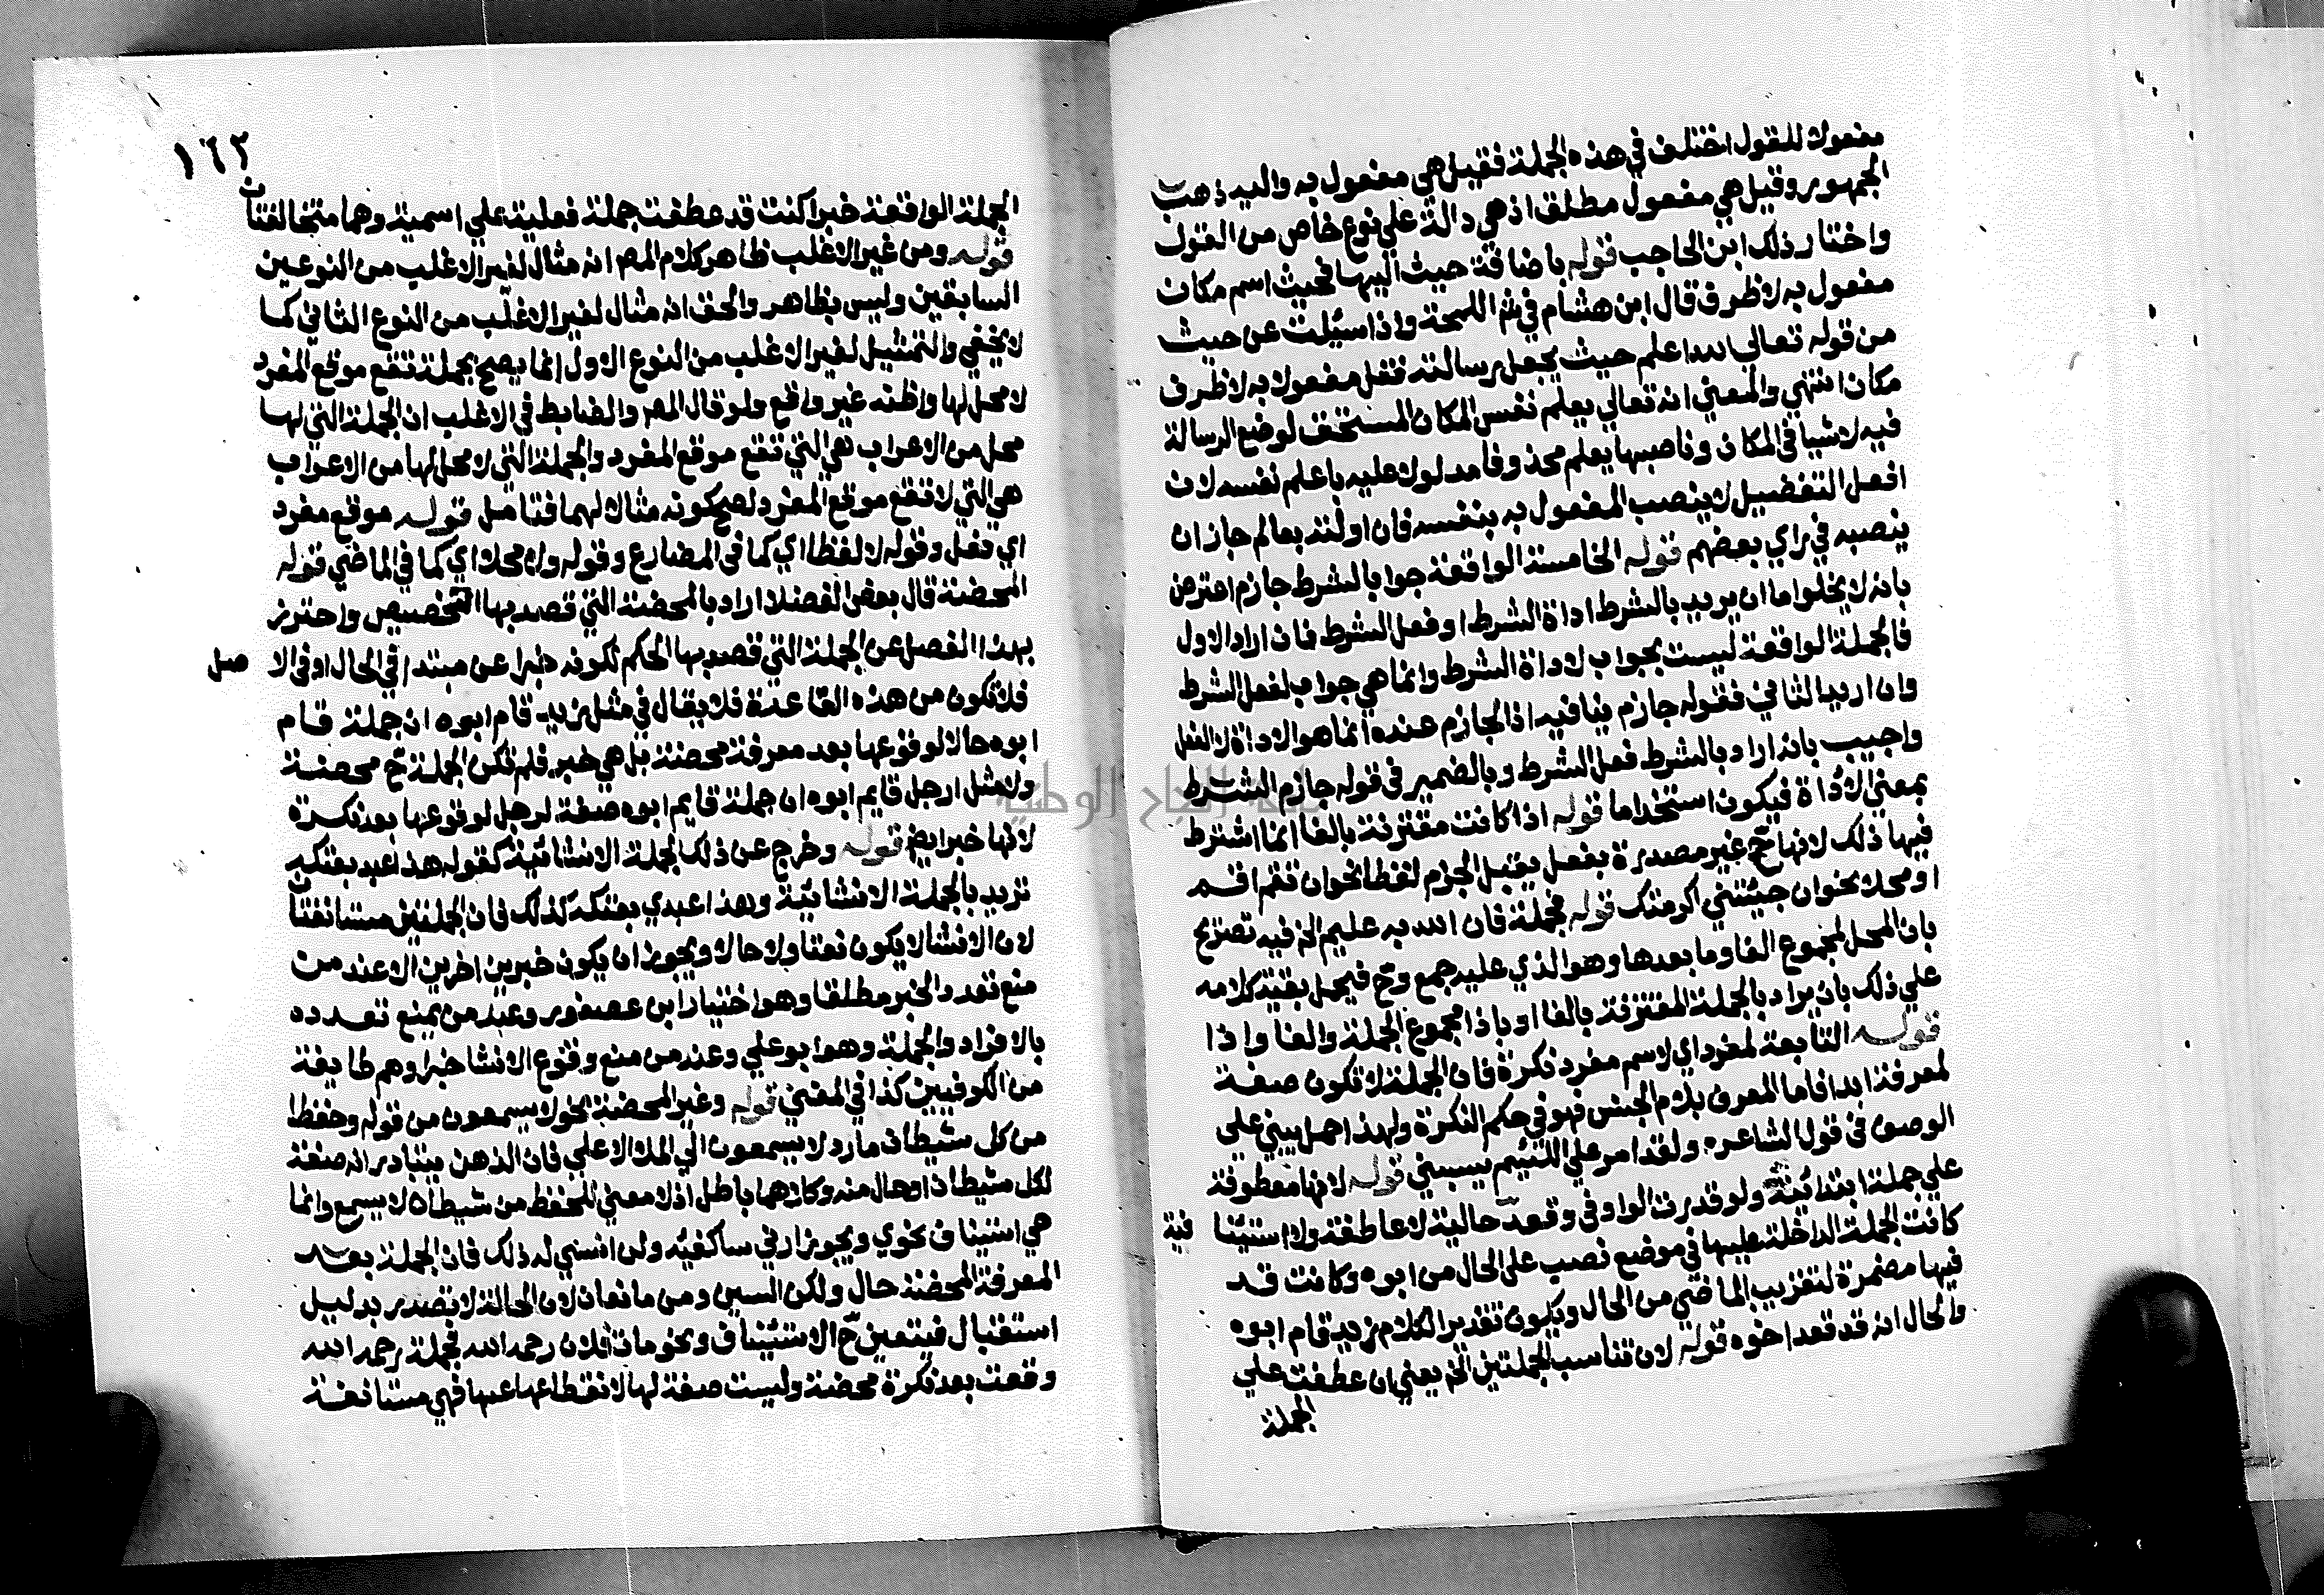 مفعولا للقول اختلف في هذه الجملة فقيل هي مفعول به واليه ذهب
الجمهور وقيل هي مفعول مطلق اذ هي دالة علي نوع خاص من القول
واختار ذلك ابن الحاجب قوله باضافة حيث اليها فحيث اسم مكان
مفعول به لا ظرف قال ابن هشام في شم اللمحة واذا سيلت عن حيث
من قوله تعالي الله اعلم حيث يجعل رسالته فقل مفعولا به لا ظرف
مكان انتهي والمعني انه تعالي يعلم نفس المكان المستحق لوضع الرسالة
فيه لا شيا في المكان وناصبها يعلم محذوفا مدلولا عليه باعلم نفسه لان
افعل التفضيل لا ينصب المفعول به بنفسه فان اولته بعالم جاز ان
ينصبه في راي بعضهم قوله الخامسة الواقعة جوابا لشرط جازم اعترض
بانه لا يخلوا ما ان يريد بالشرط اداة الشرط او فعل الشرط فان اراد الاول
فالجملة الواقعة ليست بجواب لاداة الشرط وانما هي جواب لفعل الشرط
وان اريد الثاني فقوله جازم ينافيه اذ الجازم عنده انما هو الاداة لا الفعل
واجيب بانه اراد بالشرط فعل الشرط وبالضمير في قوله جازم الشرط
بمعني الاداة فيكون استخداما قوله اذا كانت مقترنة بالفا انما اشترط
فيها ذلك لانها ح غير مصدرة بفعل يقبل الجزم لفظا نحو ان تقم اقم
او محلا نحو ان جيتني اكرمتك قوله فجملة فان الله به عليم الخ فيه تصريح
بان المحل لمجموع الفا وما بعدها وهو الذي عليه جمع وح فيحمل بقية كلامه
علي ذلك بان يراد بالجملة المقترنة بالفا او باذا مجموع الجملة والفا واذا
قوله التابعة لمفرد اي لاسم مفرد نكرة فان الجملة لا تكون صفة
لمعرفة ابدا فاما المعرف بلام الجنس فهو في حكم النكرة ولهذا حمل يبني علي
الوصف في قول الشاعر ولقد امر علي اللئيم يسبني قوله لانها معطوفة
علي جملة ابتدائية ولو قدرت الواو في وقعد حالية لا عاطفة ولا استئنا فية
كانت الجملة الداخلة عليها في موضع نصب علي الحال من ابوه وكانت قد
فيها مضمرة لتقريب الماضي من الحال ويكون تقدير الكلام زيد قام ابوه
والحال انه قد قعد اخوه قوله لان تناسب الجملتين الخ يعني ان عطفت علي
الجملة
١٦٢
الجملة الواقعة خبرا كنت قد عطفت جملة فعلية علي اسمية وهما متخالفتان
قوله ومن غير الاغلب ظاهر كلام المص انه مثال لغير الاغلب من النوعين
السابقين وليس بظاهر والحق انه مثال لغير الاغلب من النوع الثاني كما
لا يخفي والتمثيل لغير الاغلب من النوع الاول انما يصح بجملة تقع موقع المفرد
لا محل لها واظنه غير واقع ولو قال المص والضابط في الاغلب ان الجملة التي لها
محل من الاعراب هي التي تقع موقع المفرد والجملة التي لا محل لها من الاعراب
هي التي لا تقع موقع المفرد لصح كونه مثالا لهما فتامل قوله موقع مفرد
اي فعل وقوله لا لفظا اي كما في المضارع وقوله ولا محلا اي كما في الماضي قوله
المحضة قال بعض الفضلا اراد بالمحضة التي قصد بها التخصيص واحترز
بهذا الفصل عن الجملة التي قصد بها الحكم لكونه خبرا عن مبتدا في الحال او في الا صل
فلا تكون من هذه القاعدة فلا يقال في مثل زيد قام ابوه ان جملة قام
ابوه حالا لوقوعها بعد معرفة محضة بل هي خبر فلم تكن الجملة ح محضة
ولا مثل ارجل قايم ابوه ان جملة قايم ابوه صفة لرجل لوقوعها بعد نكرة
لانها خبر ايض قوله وخرج عن ذلك الجملة الانشائية كقوله هذا عبد بعتكه
تريد بالجملة الانشائية وهذا عبدي بعتكه كذلك فان الجملتين مستانفتان
لان الانشا لا يكون نعتا ولا حالا ويجوز ان يكون خبرين اخرين الا عند من
منع تعدد الخبر مطلقا وهو اختيار ابن عصفور وعند من يمنع تعدده
بالافراد والجملة وهو ابو علي وعند من منع وقوع الانشا خبرا وهم طايفة
من الكوفيين كذا في المغني قوله وغير المحضة نحو لا يسمعون من قوله وحفظا
من كل شيطان مارد لا يسمعون الي الملا الاعلي فان الذهن يتبادر انه صفة
لكل شيطان او حال منه وكلاهما باطل اذ لا معني للحفظ من شيطان لا يسمع وانما
هي استيناف نحوي ويجوز ارني ساكفيه ولن انسني له ذلك فان الجملة بعد
المعرفة المحضة حال ولكن السين ومن مانعان لان الحالة لا تصدر بدليل
استقبال فيتعين ح الاستئناف ونحو مات فلان رحمه الله فجملة رحمه الله
وقعت بعد نكرة محضة وليست صفة لها لانقطاعها عنها فهي مستانفة